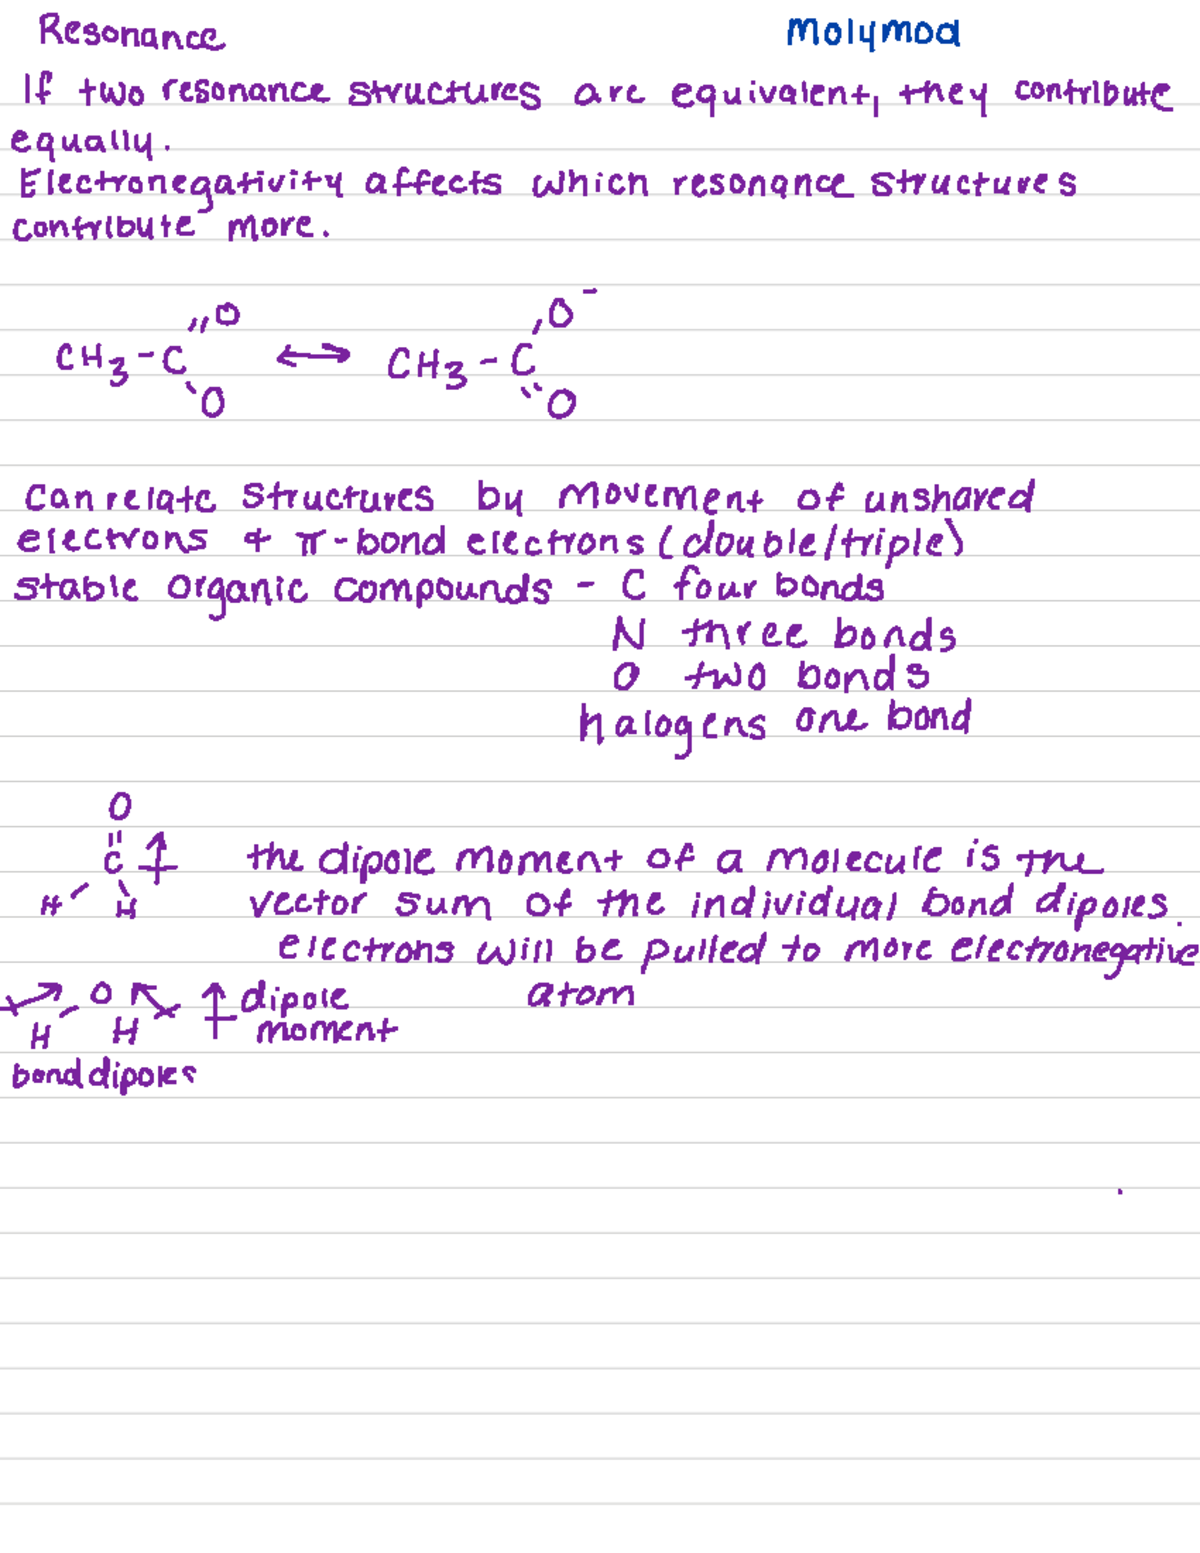 Resonance
Molymod
If two resonance structures are equivalent, they contribute
equally.
Electronegativity affects which resonance structures
contribute more.
O O⁻
CH3-C ↔ CH3-C
O O
Can relate structures by movement of unshared
electrons & π-bond electrons (double/triple)
stable organic compounds - C four bonds
N three bonds
O two bonds
halogens one bond
O
C the dipole moment of a molecule is the
H H vector sum of the individual bond dipoles.
electrons will be pulled to more electronegative
O dipole atom
H H moment
bond dipoles